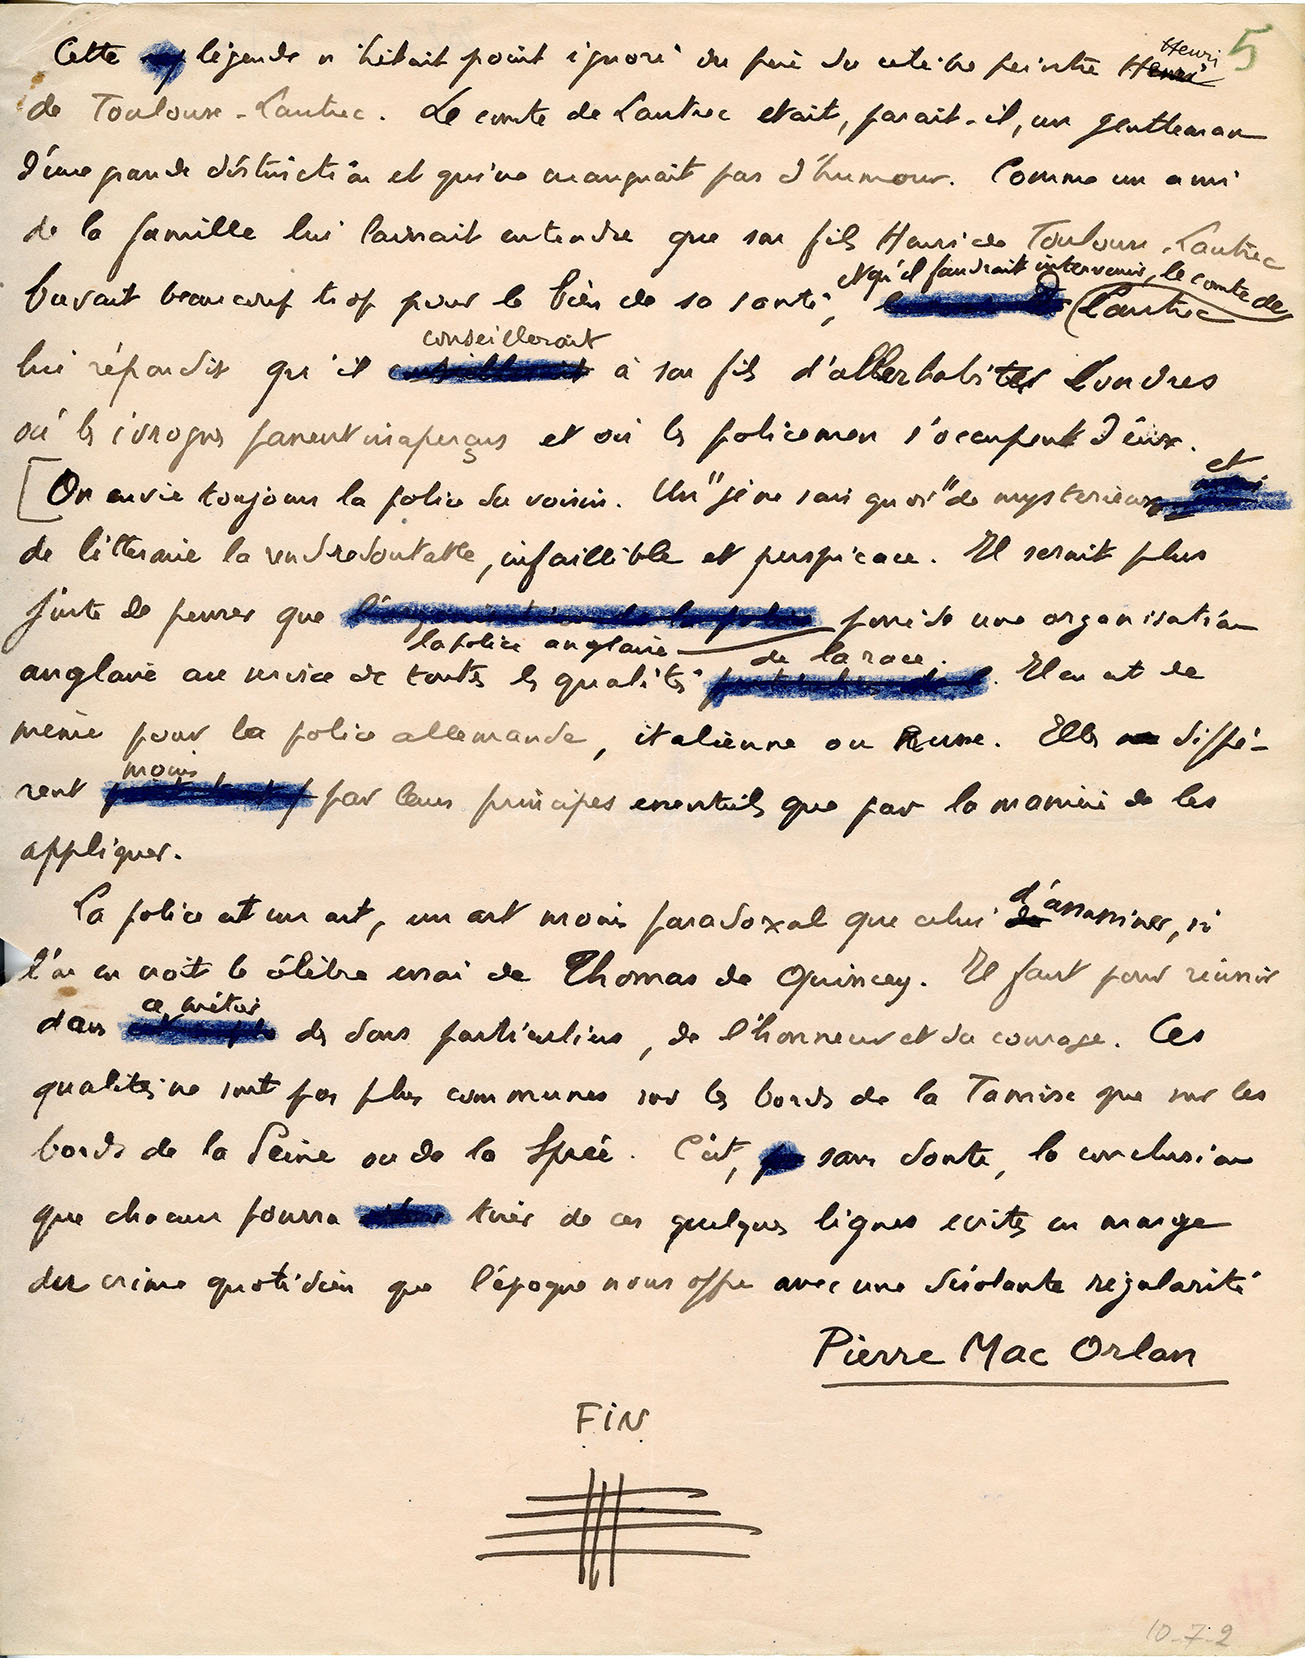 5
Cette légende n'était point ignoré du père du celèbre peintre Henri
de Toulouse-Lautrec. Le comte de Lautrec etait, parait-il, un gentleman
d'une grande distinction et qui ne manquait pas d'humour. Comme un ami
de la famille lui laissait entendre que son fils Henri de Toulouse-Lautrec
et qu'il faudrait intervenir, le comte de
buvait beaucoup trop pour le bien de sa santé, Lautrec
conseillerait
lui répondit qu'il à son fils d'aller habiter Londres
où les ivrognes passent inaperçus et où les policemen s'occupent d'eux.
et
[On envie toujours la police du voisin. Un "je ne sais quoi" de mysterieux
de litteraire la rend redoutable, infaillible et perspicace. Il serait plus
juste de penser que l'organisation de la police possède une organisation
la police anglaise de la race.
anglaise au service de toutes les qualités. Il en est de
même pour la police allemande, italienne ou Russe. Elles diffé-
moins
rent par leurs principes essentiels que par la manière de les
appliquer.
La police est un art, un art moins paradoxal que celui d'assassiner, si
l'on en croit le célèbre essai de Thomas de Quincey. Il faut pour réussir
ce métier
dans des dons particuliers, de l'honneur et du courage. Ces
qualités ne sont pas plus communes sur les bords de la Tamise que sur les
bords de la Seine ou de la Sprée. C'est, sans doute, la conclusion
que chacun pourra tirer de ces quelques lignes ecrites en marge
du crime quotidien que l'époque nous offre avec une désolante régularité
Pierre Mac Orlan
FIN
10-7-2